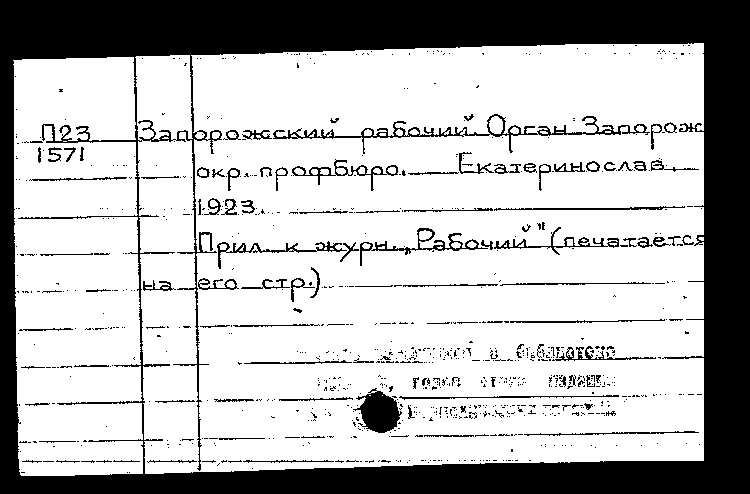 П23
1571
Запорожский рабочий. Орган Запорож
окр. профбюро. Екатеринослав.
1923.
Прил. к журн. „Рабочий" (печатается
на его стр.)
в библиотеке
годов этого издания